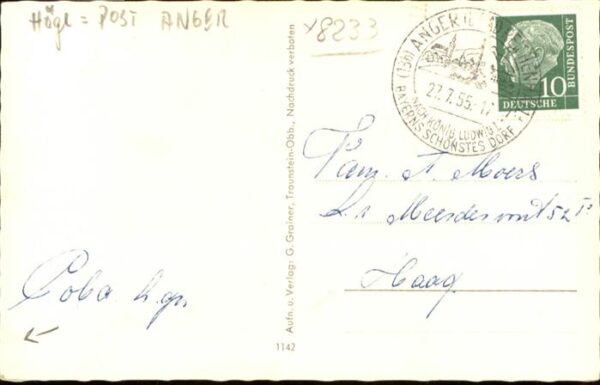 Högl = POST ANGER
x8233
(13b) ANGER
27.7.55.-17
NACH KÖNIG LUDWIG I.
BAYERNS SCHÖNSTES DORF
10
DEUTSCHE
BUNDESPOST
Fam. A. Moers
Haag
Aufn. u. Verlag: G. Grainer, Traunstein-Obb., Nachdruck verboten
1142